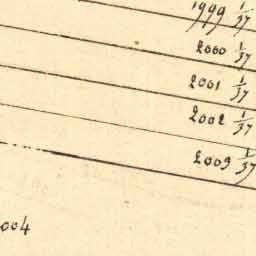 1999 1/37
2000 1/37
2001 1/37
2002 1/37
2003 1/37
004